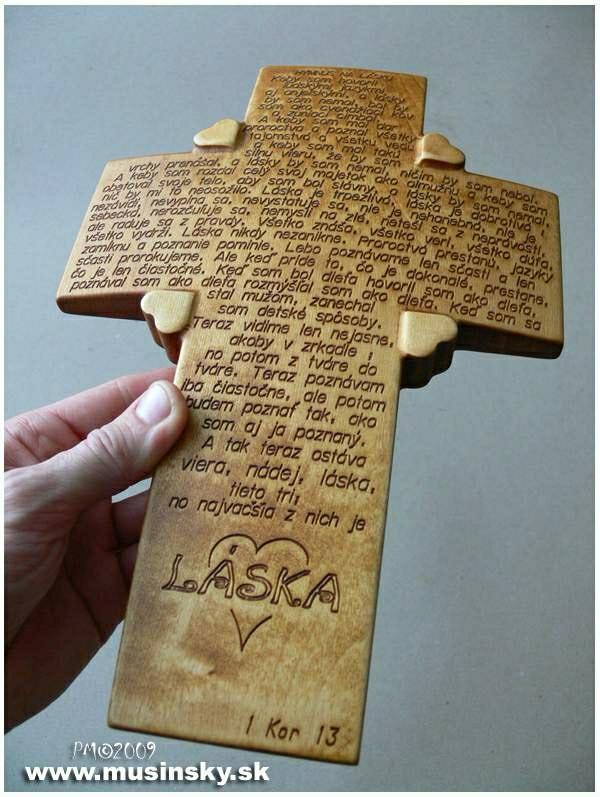 HYMNUS NA LÁSKU
Keby som hovoril
ľudskými jazykmi
aj anjelskými, a lásky
by som nemal, bol by
som ako cvendžiaci kov
a zuniaci cimbal.
A keby som mal dar
proroctva a poznal všetky
tajomstvá a všetku vedu
a keby som mal takú
silnu vieru, že by som
vrchy prenášal, a lásky by som nemal, ničím by som nebol.
A keby som rozdal celý svoj majetok ako almužnu a keby som
obetoval svoje telo, aby som bol slávny, a lásky by som nemal,
nič by mi to neosožilo. Láska je trpezlivá, láska je dobrotivá;
nezávidí, nevypína sa, nevystatuje sa, nie je nehanebná, nie je
sebecká, nerozčuľuje sa, nemyslí na zlé, neteší sa z neprávosti,
ale raduje sa z pravdy. Všetko znáša, všetko verí, všetko dúfa,
všetko vydrží. Láska nikdy nezanikne. Proroctvá prestanú, jazyky
zamĺknu a poznanie pominie. Lebo poznávame len sčasti a len
sčasti prorokujeme. Ale keď príde to, čo je dokonalé, prestane,
čo je len čiastočné. Keď som bol dieťa hovoril som ako dieťa,
poznával som ako dieťa rozmýšľal som ako dieťa. Keď som sa
stal mužom, zanechal
som detské spôsoby.
Teraz vidíme len nejasne,
akoby v zrkadle ;
no potom z tváre do
tváre. Teraz poznávam
iba čiastočne, ale potom
budem poznať tak, ako
som aj ja poznaný.
A tak teraz ostáva
viera, nádej, láska,
tieto tri;
no najväčšia z nich je
LÁSKA
1 Kor 13
PM©2009
www.musinsky.sk